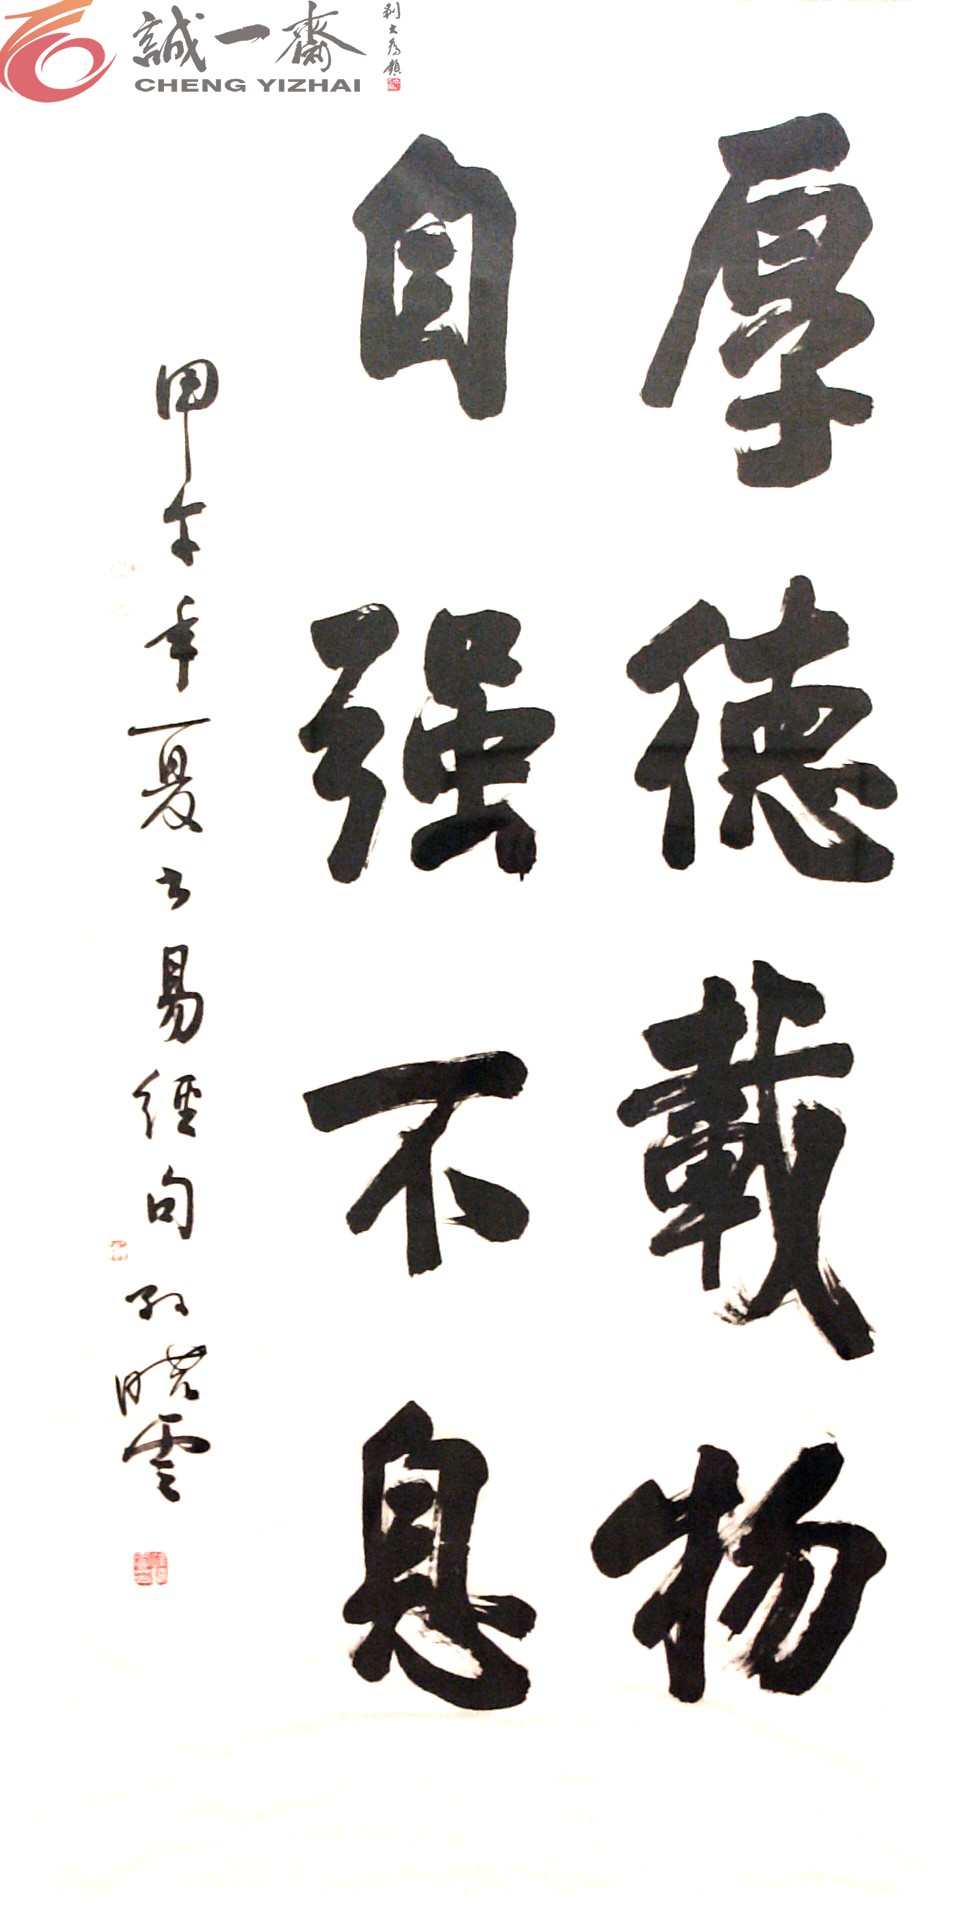 誠一齋
CHENG YIZHAI
厚德載物
自强不息
甲午年夏书易經句孙晓雲